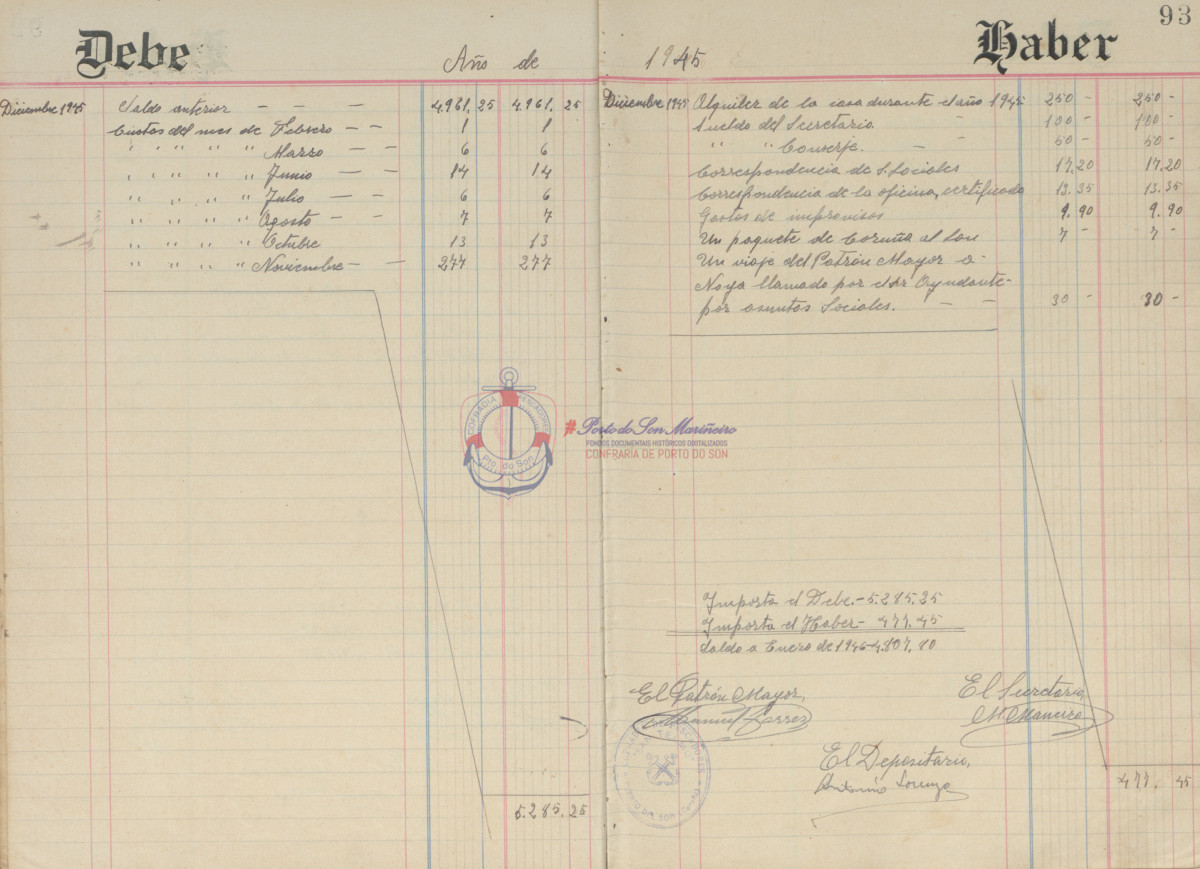 93
Debe
Año de 1945
Haber
Diciembre 1945 Saldo anterior — — — 4.961,25 4.961,25
Cuotas del mes de Febrero — — 1 1
" " " " " Marzo — — 6 6
" " " " " Junio — — 14 14
" " " " " Julio — — 6 6
" " " " " Agosto — — 7 7
" " " " " Octubre 13 13
" " " " " Noviembre — — 277 277
5.285,25
Diciembre 1945 Alquiler de la casa durante el año 1945 250 - 250 -
Sueldo del Secretario - 100 - 100 -
" " Conserje. — - 50 - 50 -
Correspondencia de S. Sociales 17,20 17,20
Correspondencia de la oficina, certificado 13.35 13.35
Gastos de improvisos 9.90 9.90
Un paquete de Coruña al Son 7 - 7 -
Un viaje del Patrón Mayor a-
Noya llamado por el Sr Ayudante-
por asuntos Sociales. — — 30 - 30 -
COFRADIA PESCADORES
Pto. do Son
#Porto do Son Mariñeiro
FONDOS DOCUMENTAIS HISTÓRICOS DIXITALIZADOS
CONFRARÍA DE PORTO DO SON
Importa el Debe.- 5.285,25
Importa el Haber- 477,45
Saldo a Enero de 1946-4.807,80
El Patrón Mayor,
El Secretario,
M. Maneiro
El Depositario,
Antonio Lorenzo
477,45